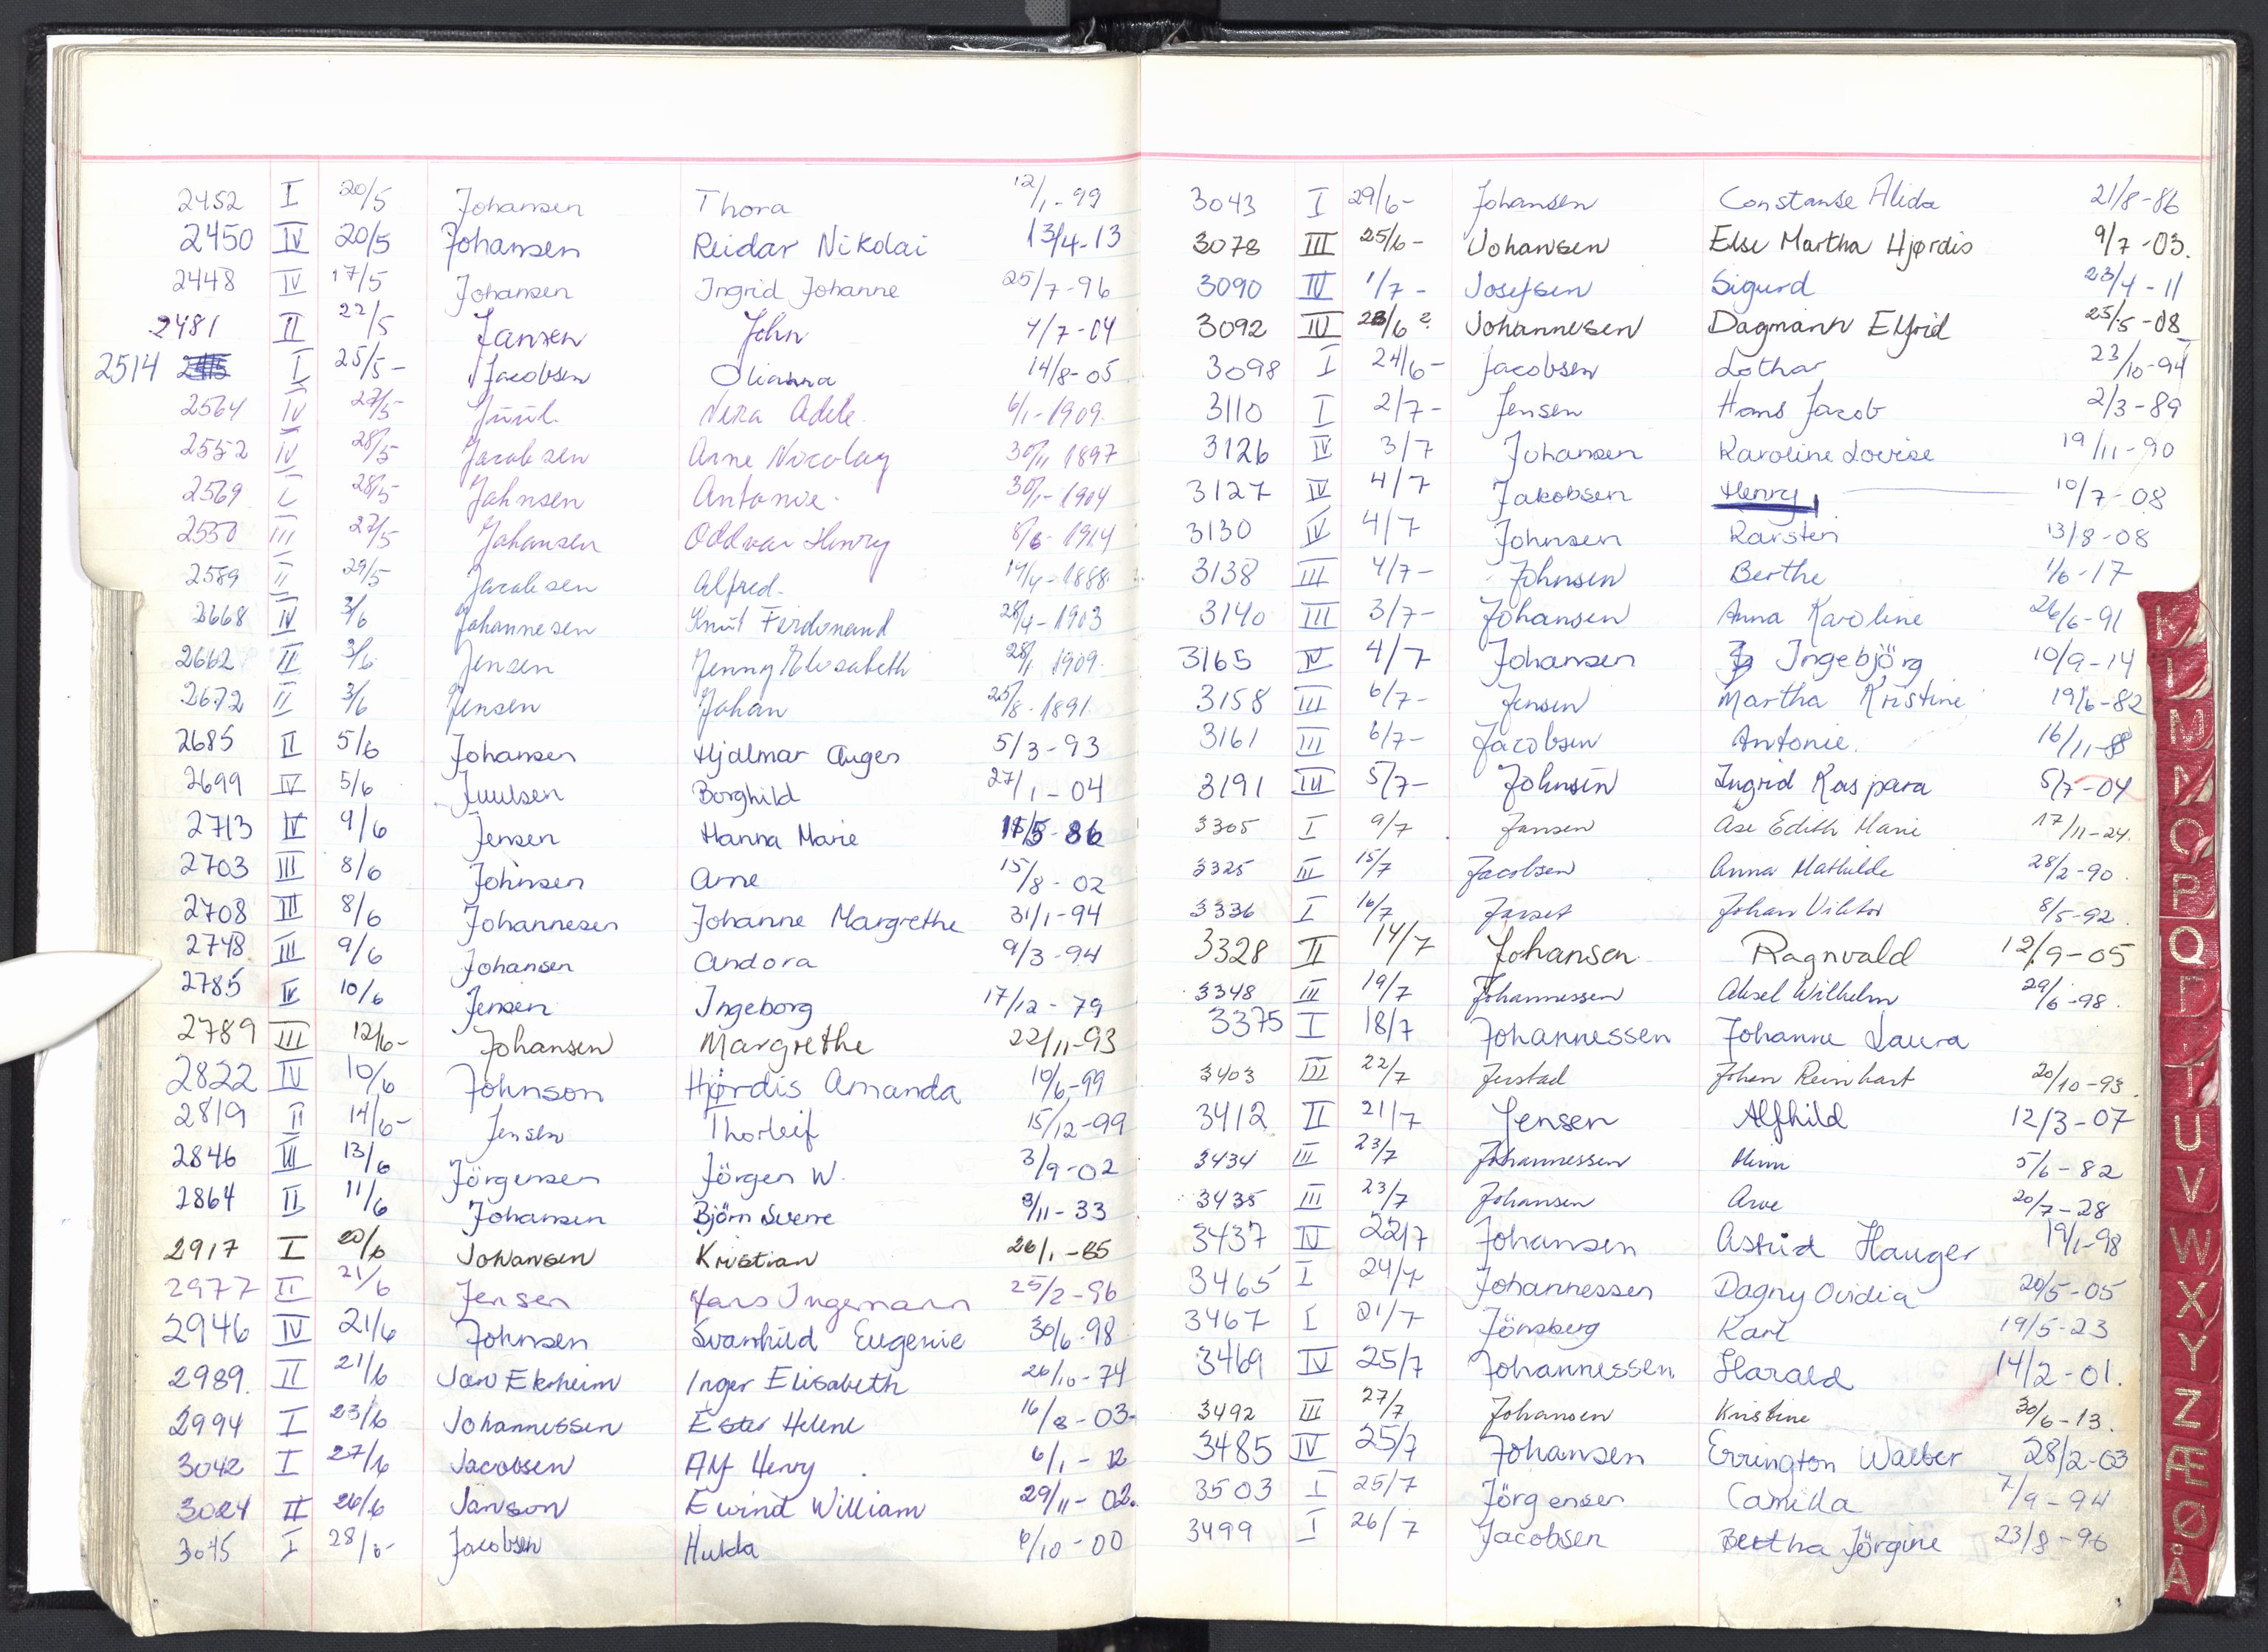 2452 I 20/5 Johansen Thora 12/1-99
2450 IV 20/5 Johansen Reidar Nikolai 13/4-13
2448 IV 17/5 Johansen Ingrid Johanne 25/7-96
2481 II 22/5 Jansen John 4/7-04
2514 I 25/5- Jacobsen Olianna 14/8-05
2564 IV 27/5 Juul Vera Adele 6/1-1909.
2552 IV 28/5 Jacobsen Arne Nicolay 30/11 1897
2569 I 28/5 Jahnsen Antonie. 30/1-1904
2550 III 27/5 Johansen Oddvar Henry 8/6-1914
2589 II 29/5 Jacobsen Alfred. 19/4-1888
2668 IV 3/6 Johannesen Knut Ferdinand 28/4-1903
2662 II 3/6 Jensen Jenny Elisabeth 28/1 1909.
2672 II 3/6 Jensen Johan 25/8-1891
2685 II 5/6 Johansen Hjalmar Auger 5/3-93
2699 IV 5/6 Juulsen Borghild 27/1-04
2713 IV 9/6 Jensen Hanna Marie 86
2703 III 8/6 Johnsen Arne 15/8-02
2708 III 8/6 Johannesen Johanne Margrethe 31/1-94
2748 III 9/6 Johansen Andora 9/3-94
2785 IV 10/6 Jensen Ingeborg 17/12-79
2789 III 12/6- Johansen Margrethe 22/11-93
2822 IV 10/6 Johnson Hjørdis Amanda 10/6-99
2819 II 14/6- Jensen Thorleif 15/12-99
2846 III 13/6 Jörgensen Jörgen W. 3/9-02
2864 II 11/6 Johansen Björn Sverre 8/11-33
2917 I 20/6 Johansen Kristian 26/1-85
2977 II 21/6 Jensen Hans Ingemann 25/2-96
2946 IV 21/6 Johnsen Svanhild Eugenie 30/6-98
2989. II 21/6 Jan Ekrheim Inger Elisabeth 26/10-74
2994 I 23/6 Johannessen Ester Helene 16/8-03-
3042 I 27/6 Jacobsen Alf Henry 6/1-12
3024 II 26/6 Janson Eivind William 29/11-02.
3045 I 28/6- Jacobsen Hulda 6/10-00
3043 I 29/6- Johansen Constanse Alida 21/8-86
3078 III 25/6- Johansen Else Martha Hjørdis 9/7-03.
3090 IV 1/7- Josefsen Sigurd 23/4-11
3092 IV 28/6? Johannesen Dagmann Elfrid 25/5-08
3098 I 24/6- Jacobsen Lothar 23/10-94
3110 I 2/7- Jensen Hans Jacob 2/3-89
3126 IV 3/7 Johansen Karoline Lovise 19/11-90
3127 IV 4/7 Jakobsen Henry 10/7-08
3130 IV 4/7 Johnsen Karsten 13/8-08
3138 III 4/7- Johnsen Berthe 1/6-17
3140 III 3/7- Johansen Anna Karoline 26/6-91
3165 IV 4/7 Johansen Ingebjörg 10/9-14
3158 III 6/7- Jensen Martha Kristine 19/6-82
3161 III 6/7- Jacobsen Antonie. 16/11-88
3191 III 5/7- Johnsen Ingrid Kaspara 5/7-04
3305 I 9/7 Jansen Åse Edith Marie 17/11-24.
3325 III 15/7 Jacobsen Anna Mathilde 28/2-90.
3336 I 16/7 Johan Viktor 8/5-92.
3328 II 14/7 Johansen Ragnvald 12/9-05
3348 III 19/7 Johannessen Aksel Wilhelm 29/6-98.
3375 I 18/7 Johannessen Johanne Laura
3403 III 22/7 Jerstad Johan Reinhart 20/10-93.
3412 II 21/7 Jensen Alfhild 12/3-07
3434 III 23/7 Johannessen 5/6-82
3435 III 23/7 Johansen Arve 20/7-28
3437 IV 22/7 Johansen Astrid Hauger 19/1-98
3465 I 24/7 Johannessen Dagny Ovidia 20/5-05
3467 I 21/7 Jönsberg Karl 19/5-23
3469 IV 25/7 Johannessen Harald 14/2-01.
3492 III 27/7 Johansen Kristine 30/6-13.
3485 IV 25/7 Johansen Errington Walber 28/2-03
3503 I 25/7 Jörgensen Camilla 7/9-94
3499 I 26/7 Jacobsen Bertha Jörgine 23/8-96
K
L
M
N
O
P
Q
R
T
U
V
W
X
Y
Z
Æ
Ø
Å